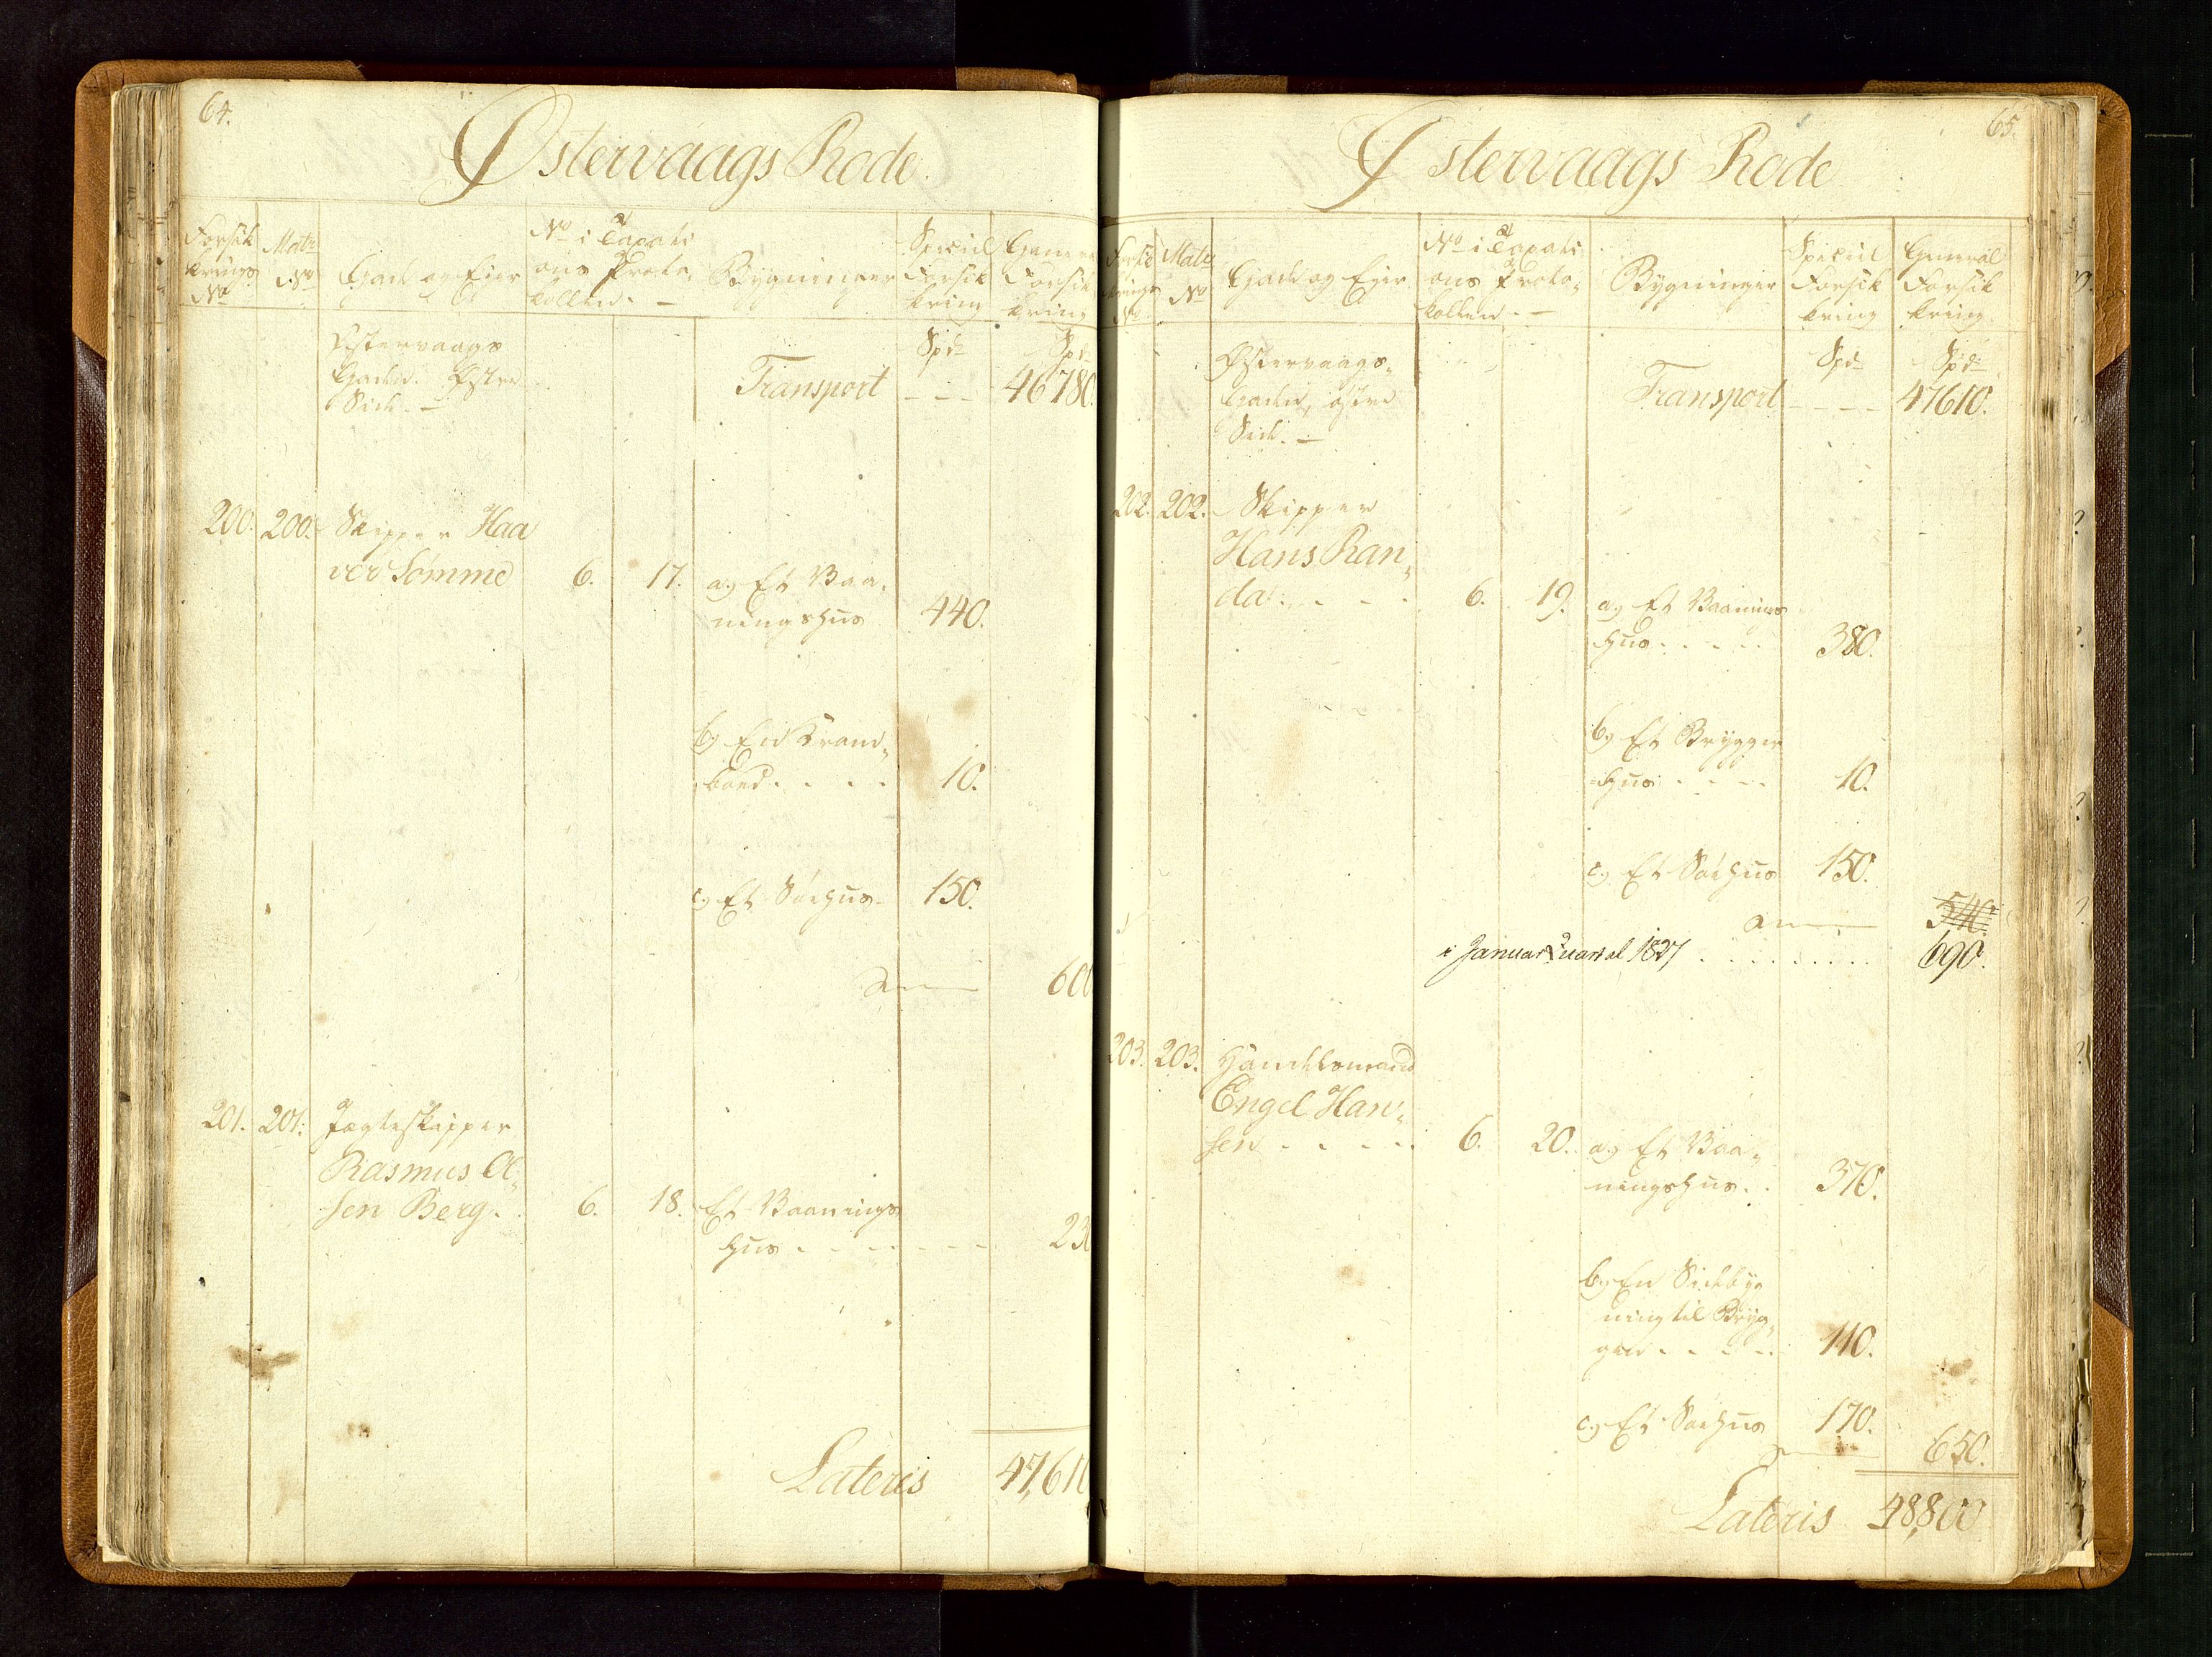 64.
Østervaags Rode.
Forsik
krings
No
Matr
No
Gade og Eier
No i Taxati
ons Proto„
kollen. —
Bygninger
Speciel
Forsik
kring
Gene
Forsik
kring
Østervaags
Gaden. Østre
Side. —
Transport - - -
Spd
Spd
46780.
200. 200. Skipper Haa
ver Sømme 6. 17. a, Et Vaa„
ningshus 440.
b, En Kram„
boed . . . . 10.
c, Et Søehus - 150.
600
201. 201. Jagteskipper
Rasmus Ol„
sen Berg. . 6. 18. Et Vaanings
hus - - - - - - - 230
Lateris 47,610
65.
Østervaags Rode
Forsik
krings
No
Matr
No
Gade og Eier
No i Taxati
ons Proto„
kollen. —
Bygninger
Speciel
Forsik
kring
General
Forsik
kring.
Østervaags„
Gaden, østre
Side. —
Transport - - - -
Spd
Spd
47610.
202. 202. Skipper
Hans Ran„
da . . . . 6. 19. a, Et Vaanings
hus . . . . . 380.
b, Et Brygger
hus . . . . 10.
c, Et Søehus 150.
540.
i Januar Quartal 1827 . . . . . . . . . 690.
203. 203. Handelsmand
Engel Han„
sen . . . . . 6. 20. a, Et Vaa„
ningshus. . 370.
b, En Sidebyg
ning til Bryg„
gen . . . . . 110.
c, Et Søehus 170.
650.
Lateris 48,800